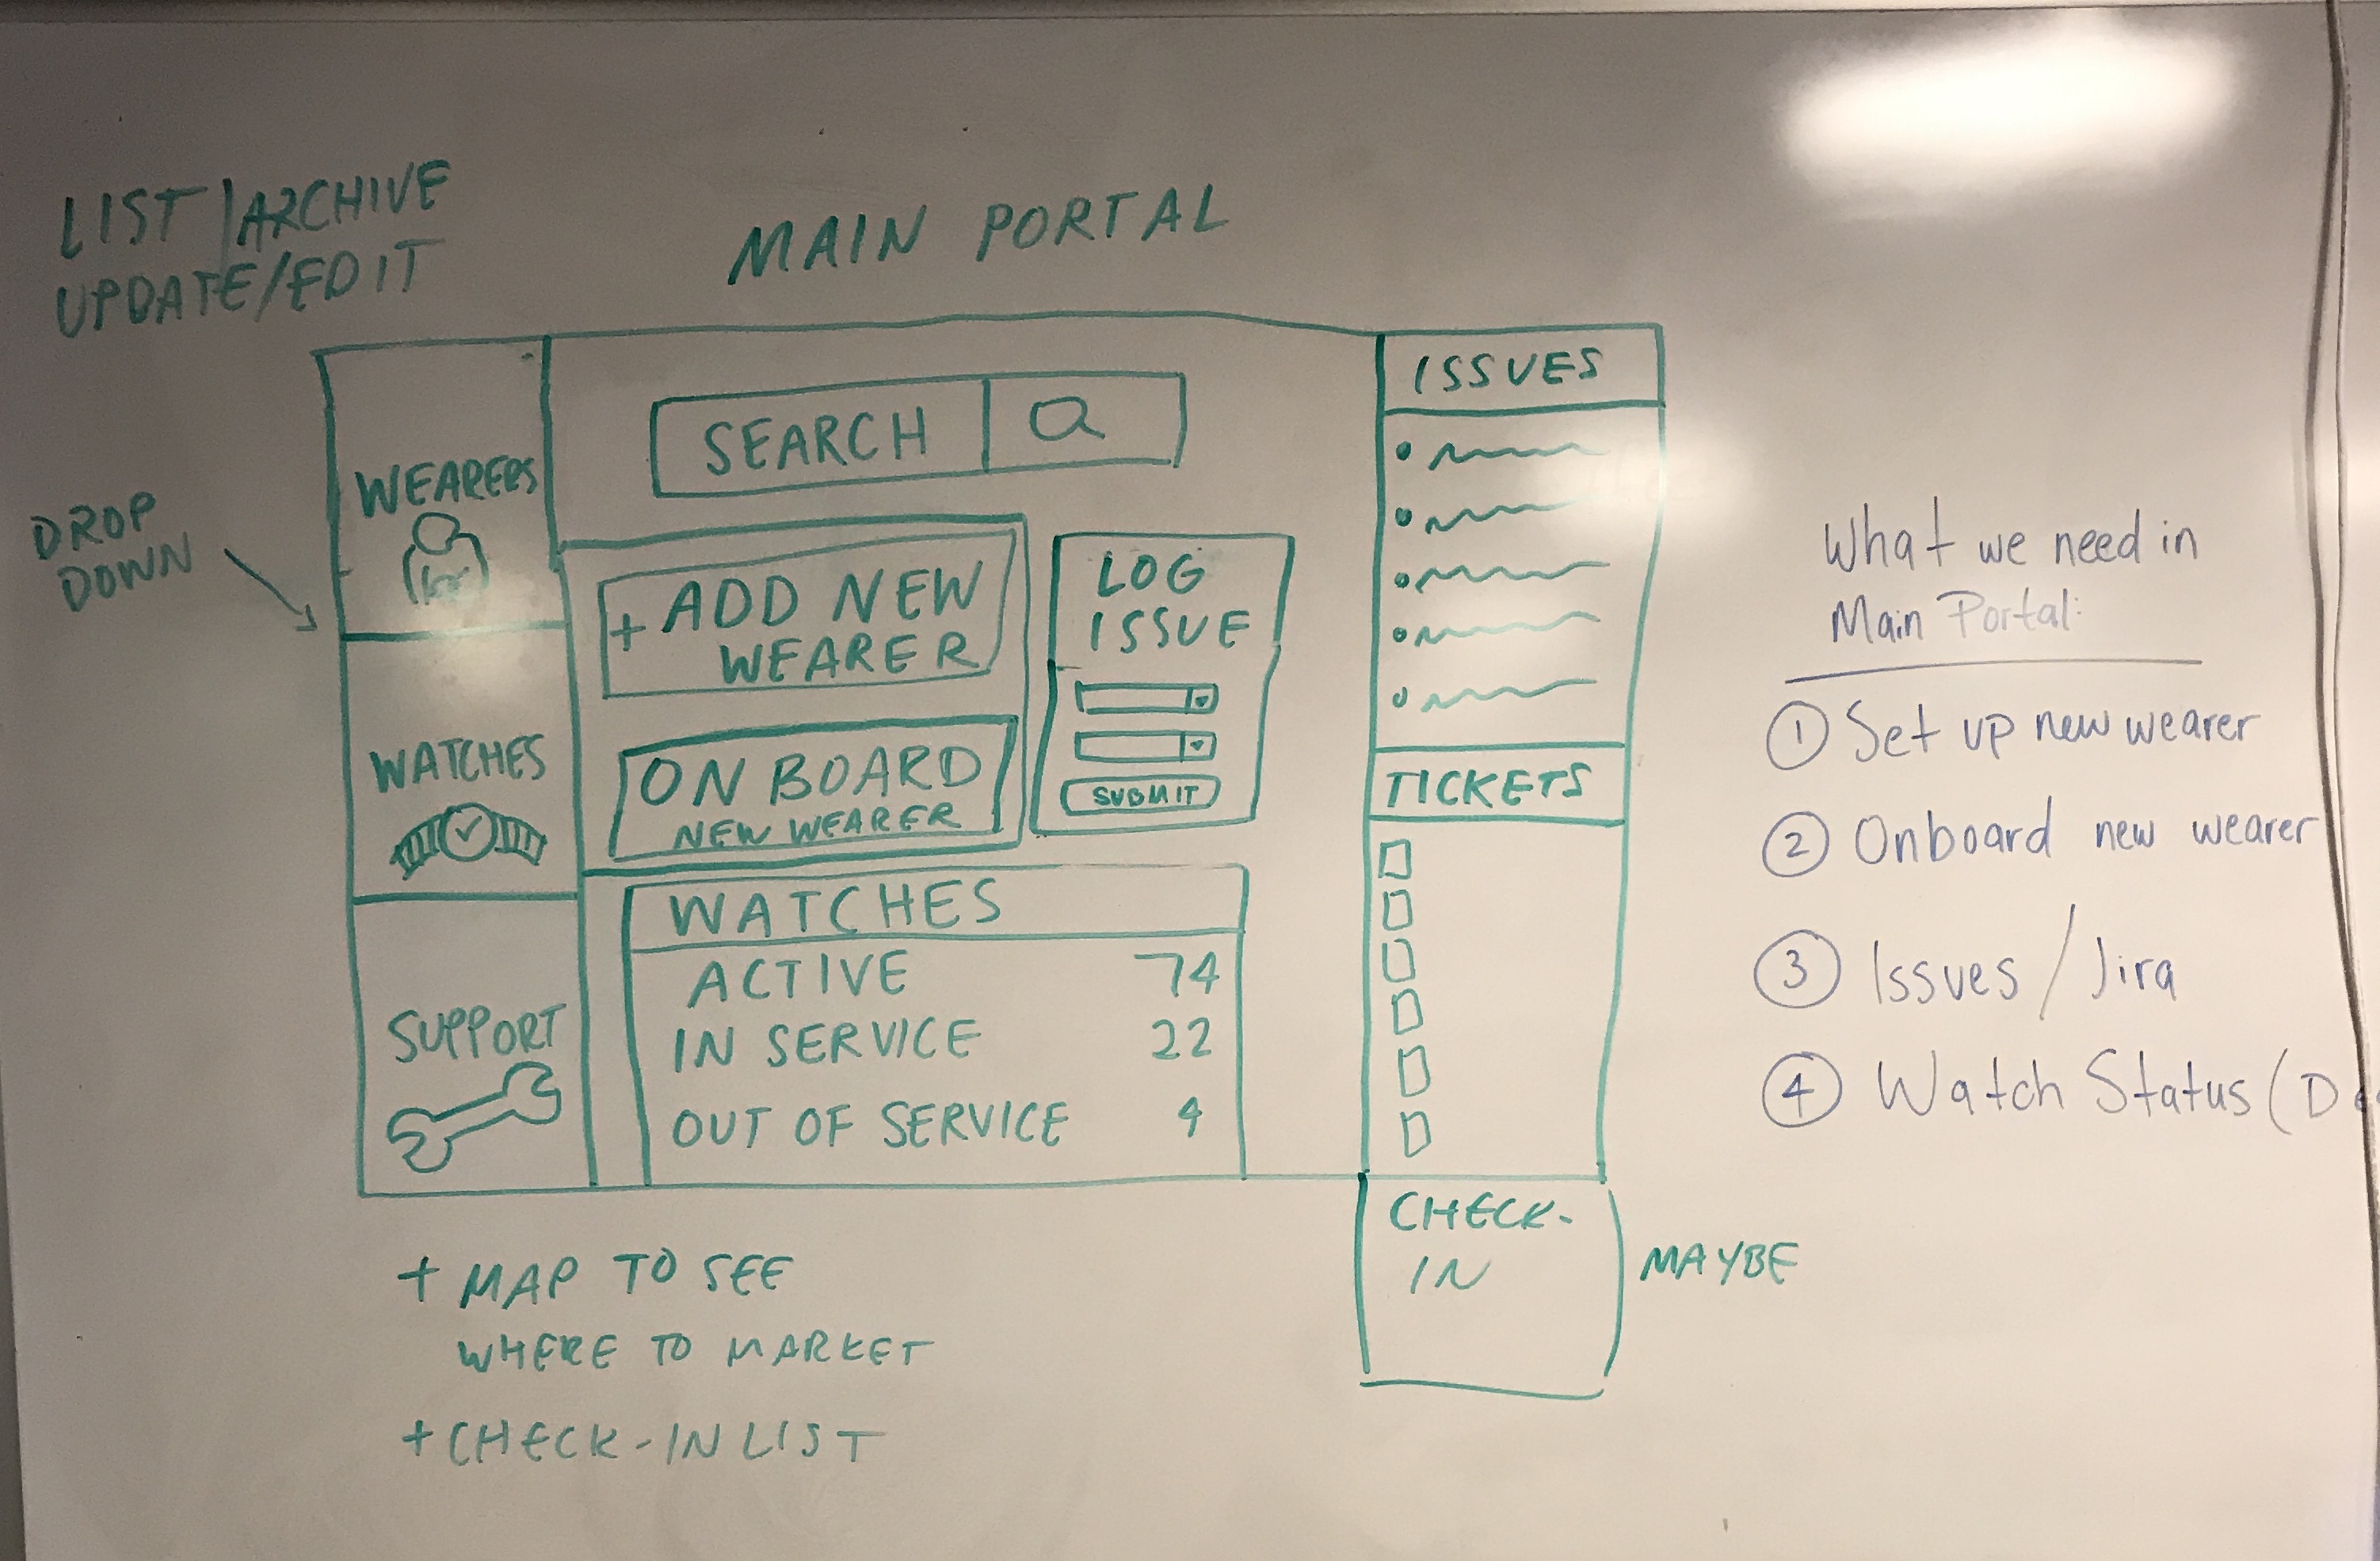 LIST/ARCHIVE
UPDATE/EDIT
MAIN PORTAL
DROP
DOWN
WEARERS
WATCHES
SUPPORT
SEARCH
+ ADD NEW
WEARER
ON BOARD
NEW WEARER
LOG
ISSUE
SUBMIT
WATCHES
ACTIVE 74
IN SERVICE 22
OUT OF SERVICE 4
ISSUES
TICKETS
CHECK-
IN
MAYBE
+ MAP TO SEE
WHERE TO MARKET
+ CHECK-IN LIST
What we need in
Main Portal:
1 Set up new wearer
2 Onboard new wearer
3 Issues / Jira
4 Watch Status (